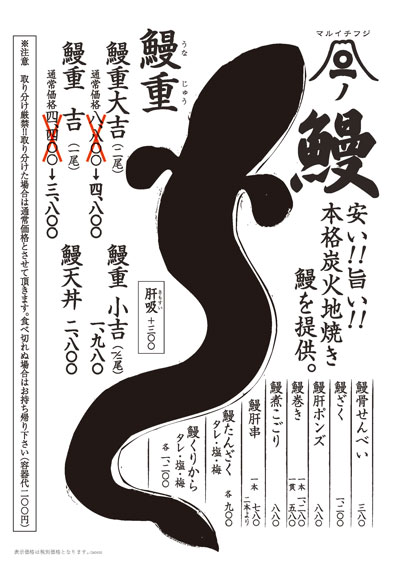 マルイチフジ
ノ
鰻
安い!!旨い!!
本格炭火地焼き
鰻を提供。
鰻重
うな じゅう
鰻重大吉(二尾)
通常価格八、八〇〇→四、八〇〇
鰻重 吉(一尾)
通常価格四、四〇〇→三、八〇〇
鰻重 小吉(½尾)
一、九八〇
鰻天丼 二、八〇〇
肝吸 +三〇〇
きもすい
鰻骨せんべい 三八〇
鰻ざく 一、二〇〇
鰻肝ポンズ 八八〇
鰻巻き 一本 一、二八〇
一貫 五八〇
鰻煮こごり 八八〇
鰻肝串 一本 七八〇
二本より
鰻たんざく
タレ・塩・梅 各 九〇〇
鰻くりから
タレ・塩・梅
各 一、二〇〇
※注意 取り分け厳禁!!取り分けた場合は通常価格とさせて頂きます。食べ切れぬ場合はお持ち帰り下さい(容器代二〇〇円)
表示価格は税別価格となります。